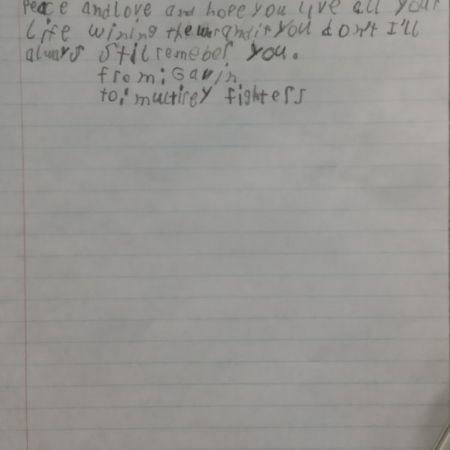 Peace andlove and hope you live all your
Life wining the war and if you don't I'll
always Stil remeber you.
from: Gavin
to: multirey fighters